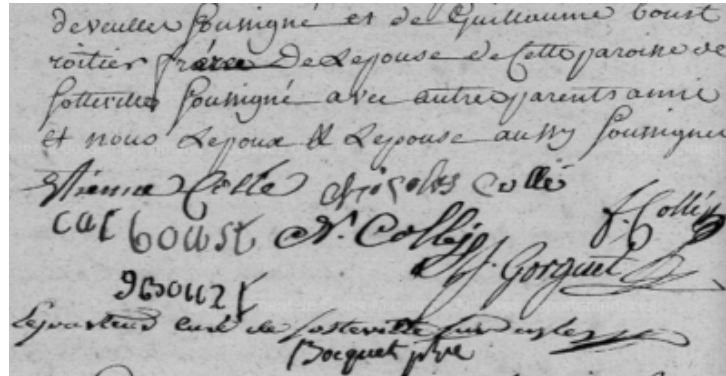 de veulles soussigné et de Guillaume boust
roitier frère De Lepouse de Cette paroisse de
sotteville soussigné avec autre parents amie
et nous Lepoux & Lepouse aussy soussigner
Etienne Collé Nicolas Collé
cat boust N. Collé f. Collé
J. Gorguet
g boust
curé de sotteville sur mer
Bocquet ptre